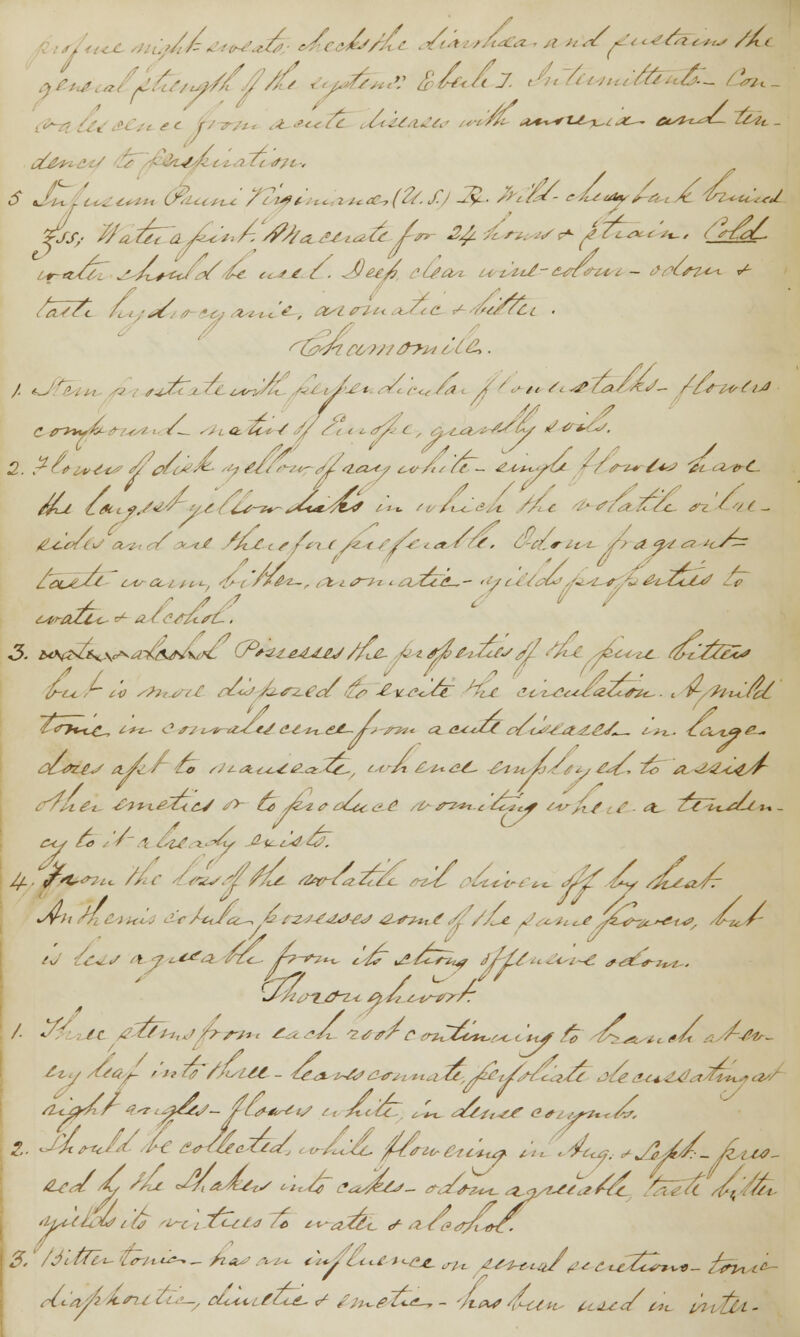 profuse night sweats; checks the diarrhœa, and sustains the
general strength of the system." Eberle J. Intermittents. – Con-
valescence from acute diseases with anorexia and ten-
dency to perspiration.
5 Infusum Pruni Virginianæ, (U.S.) R. Wild-cherry bark bruised
℥ss; Water a pint. Macerate for 24 hours & strain. Cold
water should be used. Deep clear wine-colour – odour &
taste hydrocyanic, aromatic & bitter.
Chamomile.
1. Stem prostrate with perpendicular flower stalks – flowers
compound – native of Europe, gravelly soils.
2. Flowers of disk yellow of ray white – single flowers have
the largest yellow disks in which the volatile oil re-
sides and are therefore preferable. Odour fragrant –
taste warm, bitter, aromatic. – yields properties to
water & alcohol.
3. Possesses the properties of the pure bitters
but is more disposed to excite the circulation. A mild
tonic, in convalescence from acute diseases – in large
doses apt to nauseate, whence employed to assist
other emetics or to produce vomiting where a tenden-
cy to it already exists.
4. From the loss of the volatile oil driven off by heat.
Anthemis cotula possesses some of the same powers, but
is less agreeable from its strong offensive odour.
Thoroughwort.
1. Three stems from each root continuing to branch at ev-
ery leaf into three – leaves connate, perfoliate decussating at
right angles – flowers white, in dense corymbs.
2. Should be collected, while flowering in Aug. & Sept. – pres-
sed by the Shakers into cakes – odour agreeable, taste bitter
yields its virtues to water & alcohol.
3. Bitter tonic – has an influence on several secretions – tonic
diaphoretic, diuretic & emetic, – has been used in inter-